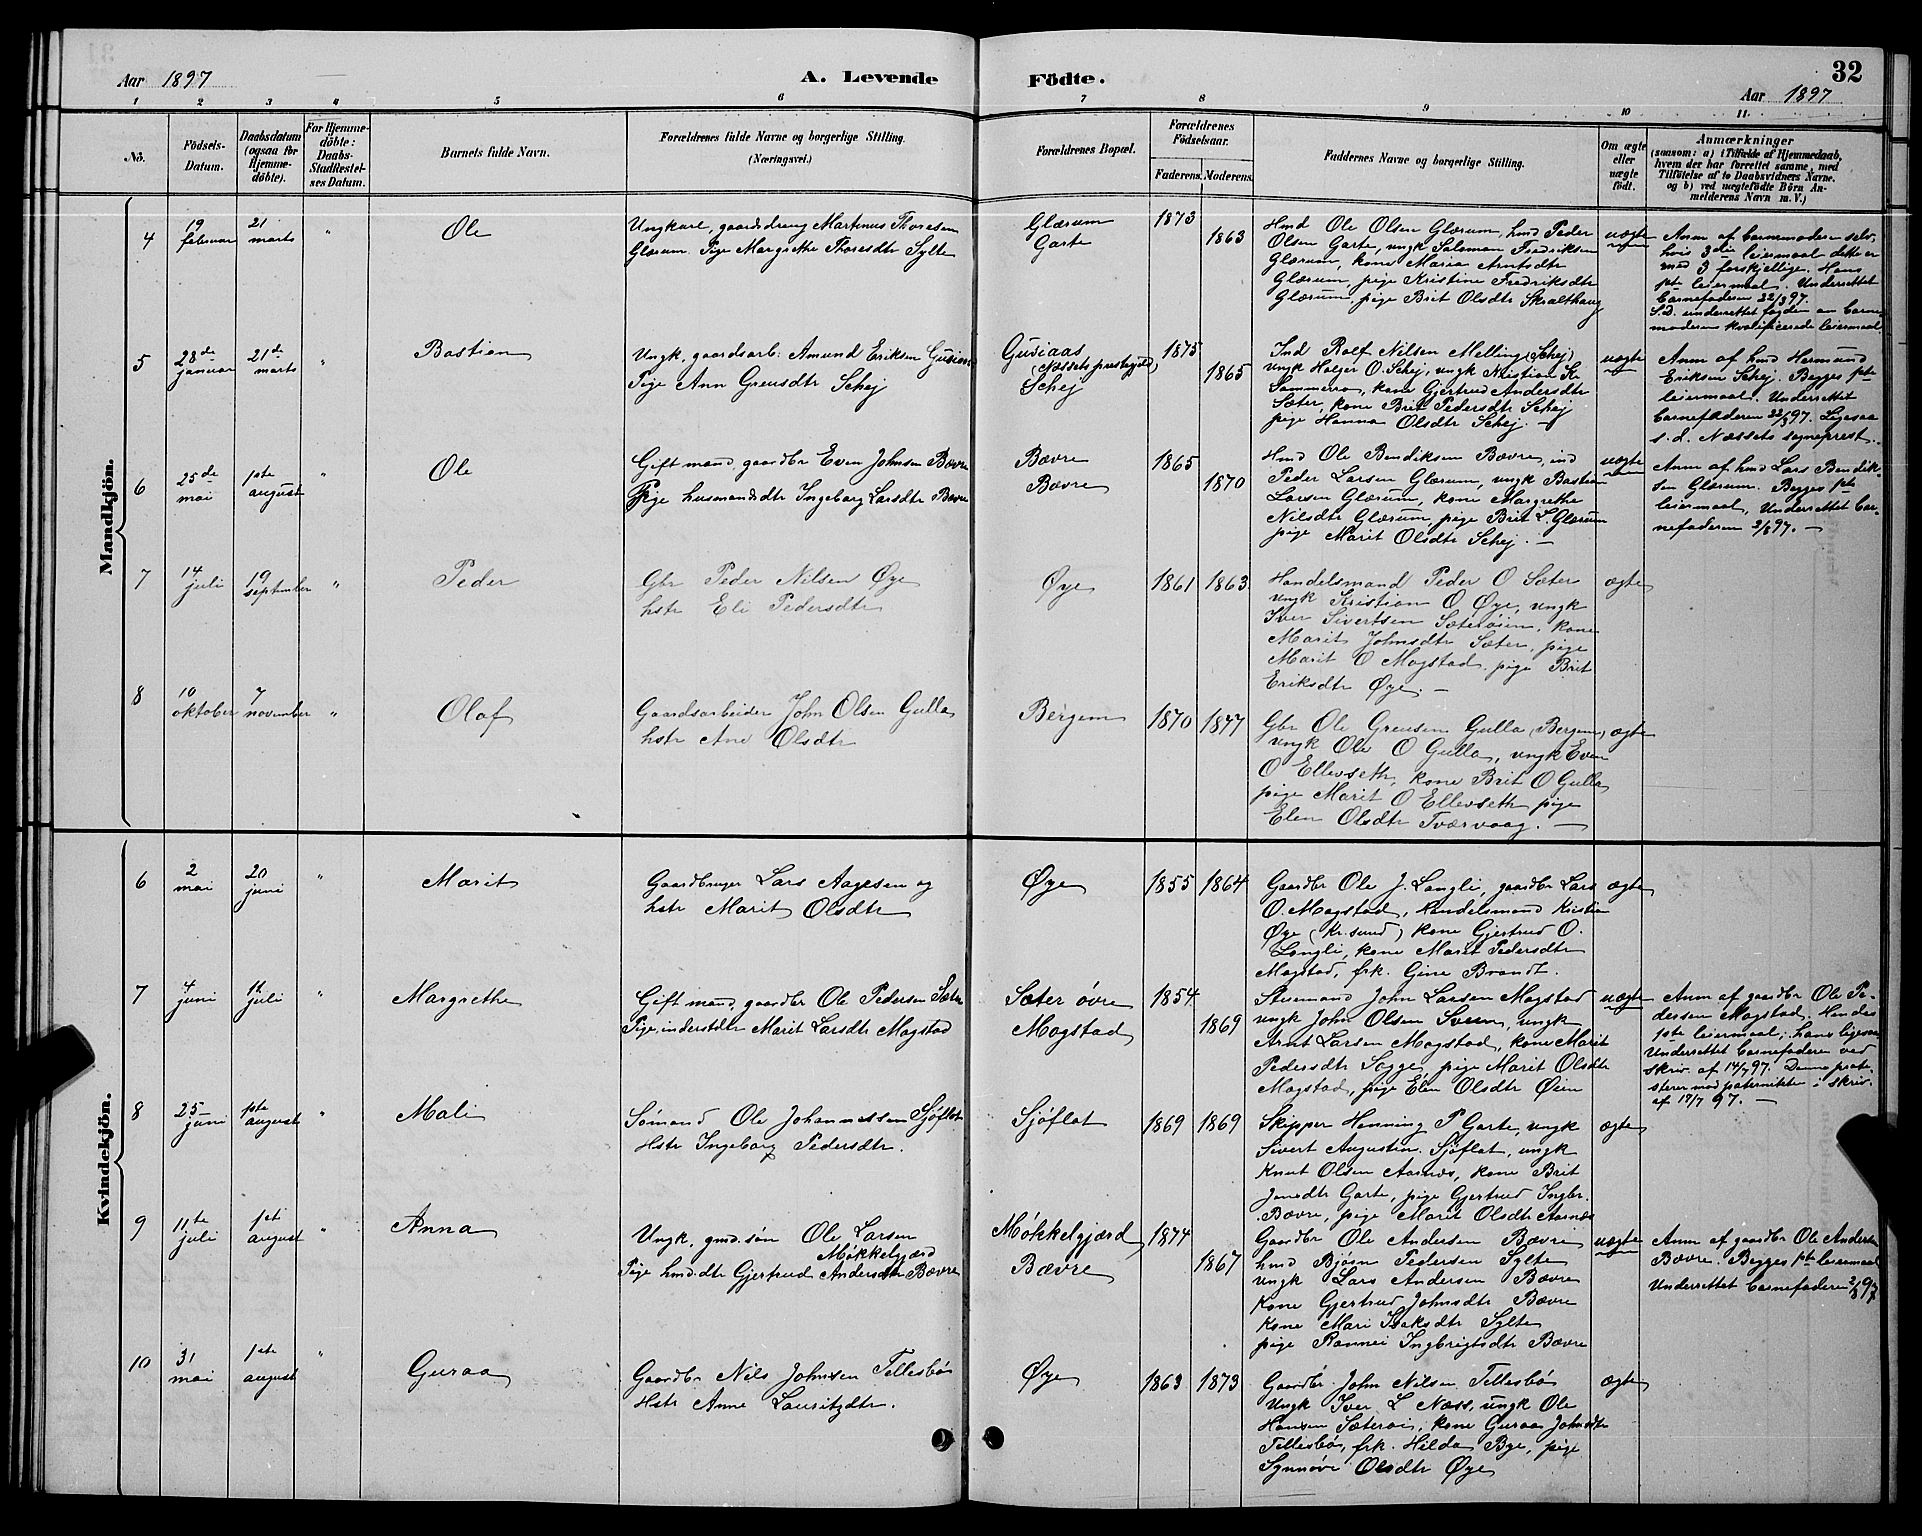 Aar 1897
A. Levende
Födte.
32
Aar 1897
1 2 3 4 5 6 7 8 9 10 11
No.
Födsels-Datum.
Daabsdatum (ogsaa for Hjemmedöbte).
For Hjemmedöbte: Daabs-Stadfæstelses Datum.
Barnets fulde Navn.
Forældrenes fulde Navne og borgerlige Stilling.
(Næringsvei.)
Forældrenes Bopæl.
Forældrenes Födselsaar.
Faderens. Moderens.
Faddernes Navne og borgerlige Stilling.
Om ægte eller uægte födt.
Anmærkninger
(saasom: a) i Tilfælde af Hjemmedaab, hvem der har forrettet samme, med Tilföielse af to Daabsvidners Navne. og b) ved uægtefödte Börn Anmelderens Navn m. V.)
Mandkjön.
4
19 februar
21 marts
"
Ole
Ungkarl, gaardsdreng Martinus Thoresen
Glærum. Pige Margrethe Thoresdtr Sylte
Glærum
Garte
1873
1863
Hmd Ole Olsen Glærum, hmd Peder
Olsen Garte, ungk Salomon Fredriksen
Glærum, kone Maria Arntsdtr
Glærum, pige Kristine Fredriksdtr
Glærum, pige Brit Olsdtr Skralthaug
uægte
Anm af barnemoderen selv,
hvis 3die leiermaal dette er
med 3 forskjellige. Hans
1ste leiermaal. Underrettet
barnefaderen 22/3 97.
S.D. underrettet fogden om barnemoderens kvalificerede leiermaal
5
28de januar
21de marts
"
Bastian
Ungk. gaardsarb: Amund Eriksen Gusiaas
Pige Ann Greusdtr Schej
Gusiaas
(Næssets prestegjeld)
Schej
1875
1865
Ind Rolf Nilsen Melling (Schej)
ungk Holger O. Schej, ungk Kristian Kr
Sommerro, kone Gjertrud Andersdtr
Sæter, kone Brit Pedersdtr Schej
pige Hanna Olsdtr Schej. —
uægte
Anm af hmd Hermund
Eriksen Schej. Begges 1ste
leiermaal. Underrettet
barnefaderen 22/3 97. Ligesaa
s. d. Næssets sogneprest.
6
25de mai
1ste august
"
Ole
Gift mand, gaardbr Even Johnsen Bævre
Pige husmandsdtr Ingeborg Larsdtr Bævre
Bævre
Bævre
1865
1870
Hmd Ole Bendiksen Bævre, ind
Peder Larsen Glærum, ungk Bastian
Larsen Glærum, kone Margrethe
Nilsdtr Glærum, pige Brit L. Glærum
pige Marit Olsdtr Schej. —
uægte
Anm af hmd Lars Bendiksen Glærum. Begges 1ste
leiermaal, Underrettet barnefaderen 2/8 97. —
7
14 juli
19 september
"
Peder
Gbr Peder Nilsen Øye
hstr Eli Pedersdtr
Øye
1861 1863
Handelsmand Peder O Sæter
ungk Kristian O Øye, ungk
Iver Sivertsen Sæterøien, kone
Marit Johnsdtr Sæter, pige
Marit O Mogstad, pige Brit
Eriksdtr Øye. —
ægte
8
10 oktober
7 november
"
Olaf
Gaardsarbeider John Olsen Gulla
hstr Ane Olsdtr
Bergem
1870 1877
Gbr Ole Greusen Gulla (Bergem)
ungk Ole O Gulla, ungk Even
O Ellevseth, kone Brit O Gulla
pige Marit O Ellevseth, pige
Elen Olsdtr Tværvaag. —
ægte
Kvindekjön.
6
2 mai
20 juni
"
Marit
Gaardbruger Lars Aagesen og
hstr Marit Olsdtr
Øye
1855 1864
Gaardbr Ole J. Langli, gaardbr Lars
O. Mogstad, Handelsmand Kristian
Øye (Kr.sund) kone Gjertrud O.
Langli, kone Marit Pedersdtr
Mogstad, frk. Gine Brandt.
ægte
7
4 juni
11 juli
"
Margrethe
Gift mand, gaardbr Ole Pedersen Sæter
Pige, inderstdtr Marit Larsdtr Mogstad
Sæter övre
Mogstad
1854
1869
Stuemand John Larsen Mogstad
ungk John Olsen Sveen, ungk
Arnt Larsen Mogstad, kone Marit
Pedersdtr Segge, pige Marit Olsdtr
Mogstad, pige Elen Olsdtr Øien
uægte
Anm af gaardbr Ole Pedersen Mogstad. Hendes
1ste leiermaal; hans ligesaa
Underrettet barnefaderen ved
skriv. af 14/7 97. Denne protesterer mod paterniteten i skriv.
af 17/7 97. —
8
25 juni
1ste august
"
Mali
Sømand Ole Johannessen Sjöflot
Hstr Ingeborg Pedersdtr.
Sjöflot
1869 1869
Skipper Henning P Garte, ungk
Sivert Augustin. Sjöflot, ungk
Knut Olsen Aarnes, kone Brit
Jonsdtr Garte, pige Gjertrud Ingbr.
Bævre, pige Marit Olsdtr Aarnes
ægte
9
11te juli
1st august
"
Anna
Ungk. gmd.sön Ole Larsen
Møkkelgjærd
Pige hmd.dtr Gjertrud Andersdtr Bævre
Møkkelgjærd
Bævre
1874
1867
Gaardbr Ole Andersen Bævre
hmd Bjørn Pedersen Sylte
ungk Lars Andersen Bævre
Kone Gjertrud Johnsdtr Bævre
Kone Mari Isaksdtr Sylte
pige Rannei Ingbrigtsdtr Bævre
uægte
Anm af gaardbr Ole Andersen
Bævre. Begges 1ste leiermaal
Underrettet barnefaderen 2/8 97
10
31 mai
1ste august
"
Guraa
Gaardbr Nils Johnsen Tellesbø
Hstr Anne Lauritzdtr.
Øye
1863 1873
Gaardbr. John Nilsen Tellesbø
Ungk Iver L Næss, ungk Ole
Hansen Sæterøi, kone Guraa Johnsdtr
Tellesbø, frk. Hilda Bye, pige
Synnøve Olsdtr Øye
ægte